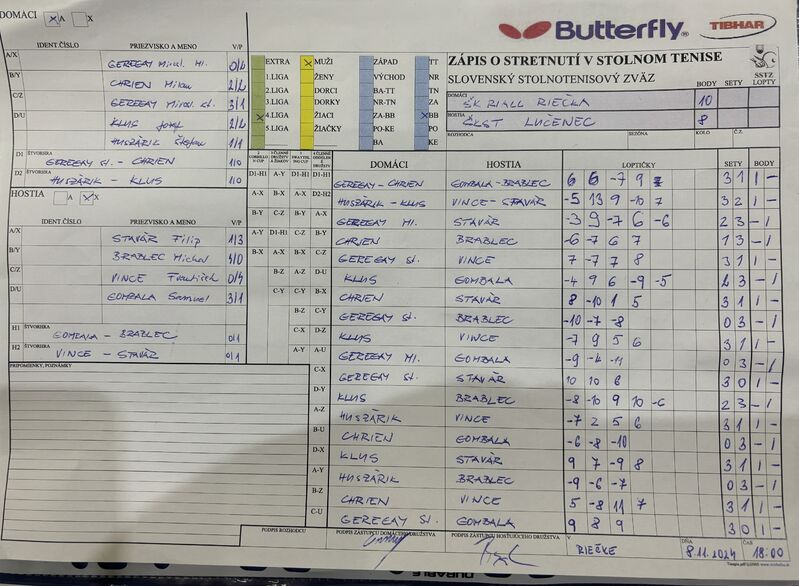 DOMÁCI x A X
Butterfly
TIBHAR
IDENT.ČÍSLO PRIEZVISKO A MENO V/P
A/X GEREGAY Mirosl. Ml. 0/4
B/Y CHRIEN Milan 2/2
C/Z GEREGAY Mirosl. st. 3/1
D/U KLUS Jozef 2/2
HUSZÁRIK Štefan 1/1
D1 ŠTVORHRA
GEREGAY st. - CHRIEN 1/0
D2 ŠTVORHRA
HUSZÁRIK - KLUS 1/0
HOSTIA A x X
IDENT.ČÍSLO PRIEZVISKO A MENO V/P
A/X STAVÁR Filip 1/3
B/Y BRABLEC Michal 4/0
C/Z VINCE František 0/4
D/U GOMBALA Samuel 3/1
H1 ŠTVORHRA
GOMBALA - BRABLEC 0/1
H2 ŠTVORHRA
VINCE - STAVÁR 0/1
PRIPOMIENKY, POZNÁMKY
EXTRA x MUŽI ZÁPAD TT
1.LIGA ŽENY VÝCHOD NR
2.LIGA DORCI BA-TT TN
3.LIGA DORKY NR-TN ZA
x 4.LIGA ŽIACI ZA-BB x BB
5.LIGA ŽIAČKY PO-KE PO
BA KE
ZÁPIS O STRETNUTÍ V STOLNOM TENISE
SLOVENSKÝ STOLNOTENISOVÝ ZVÄZ
BODY SETY SSTZ LOPTY
DOMÁCI ŠK RIALL RIEČKA 10
HOSTIA ŠKST LUČENEC 8
ROZHODCA SEZÓNA KOLO Č.Z.
DOMÁCI HOSTIA LOPTIČKY SETY BODY
D1-H1 A-Y D1-H1 D1-H1 GEREGAY - CHRIEN GOMBALA - BRABLEC 6 6 -7 9 3 1 1 -
A-X B-X A-X D2-H2 HUSZÁRIK - KLUS VINCE - STAVÁR -5 13 9 -10 7 3 2 1 -
B-Y C-Z B-Y A-X GEREGAY Ml. STAVÁR -3 9 -7 6 -6 2 3 - 1
A-Y D1-H1 C-Z B-Y CHRIEN BRABLEC -6 -7 6 7 1 3 - 1
B-X A-X B-X C-Z GEREGAY st. VINCE 7 -7 7 8 3 1 1 -
B-Z A-Z D-U KLUS GOMBALA -4 9 6 -9 -5 2 3 - 1
C-Y C-Y B-X CHRIEN STAVÁR 8 -10 1 5 3 1 1 -
B-Z C-Y GEREGAY st. BRABLEC -10 -7 -8 0 3 - 1
C-X D-Z KLUS VINCE -7 9 5 6 3 1 1 -
A-Y A-U GEREGAY Ml. GOMBALA -9 -4 -11 0 3 - 1
C-X GEREGAY st. STAVÁR 10 10 6 3 0 1 -
D-Y KLUS BRABLEC -8 -10 9 10 -6 2 3 - 1
A-Z HUSZÁRIK VINCE -7 2 5 6 3 1 1 -
B-U CHRIEN GOMBALA -6 -8 -10 0 3 - 1
D-X KLUS STAVÁR 9 7 -9 8 3 1 1 -
A-Y HUSZÁRIK BRABLEC -9 -6 -7 0 3 - 1
B-Z CHRIEN VINCE 5 -8 11 7 3 1 1 -
C-U GEREGAY st. GOMBALA 9 8 9 3 0 1 -
PODPIS ROZHODCU PODPIS ZÁSTUPCU DOMÁCEHO DRUŽSTVA PODPIS ZÁSTUPCU HOSŤUJÚCEHO DRUŽSTVA V RIEČKE DŇA 8.11.2024 ČAS 18:00